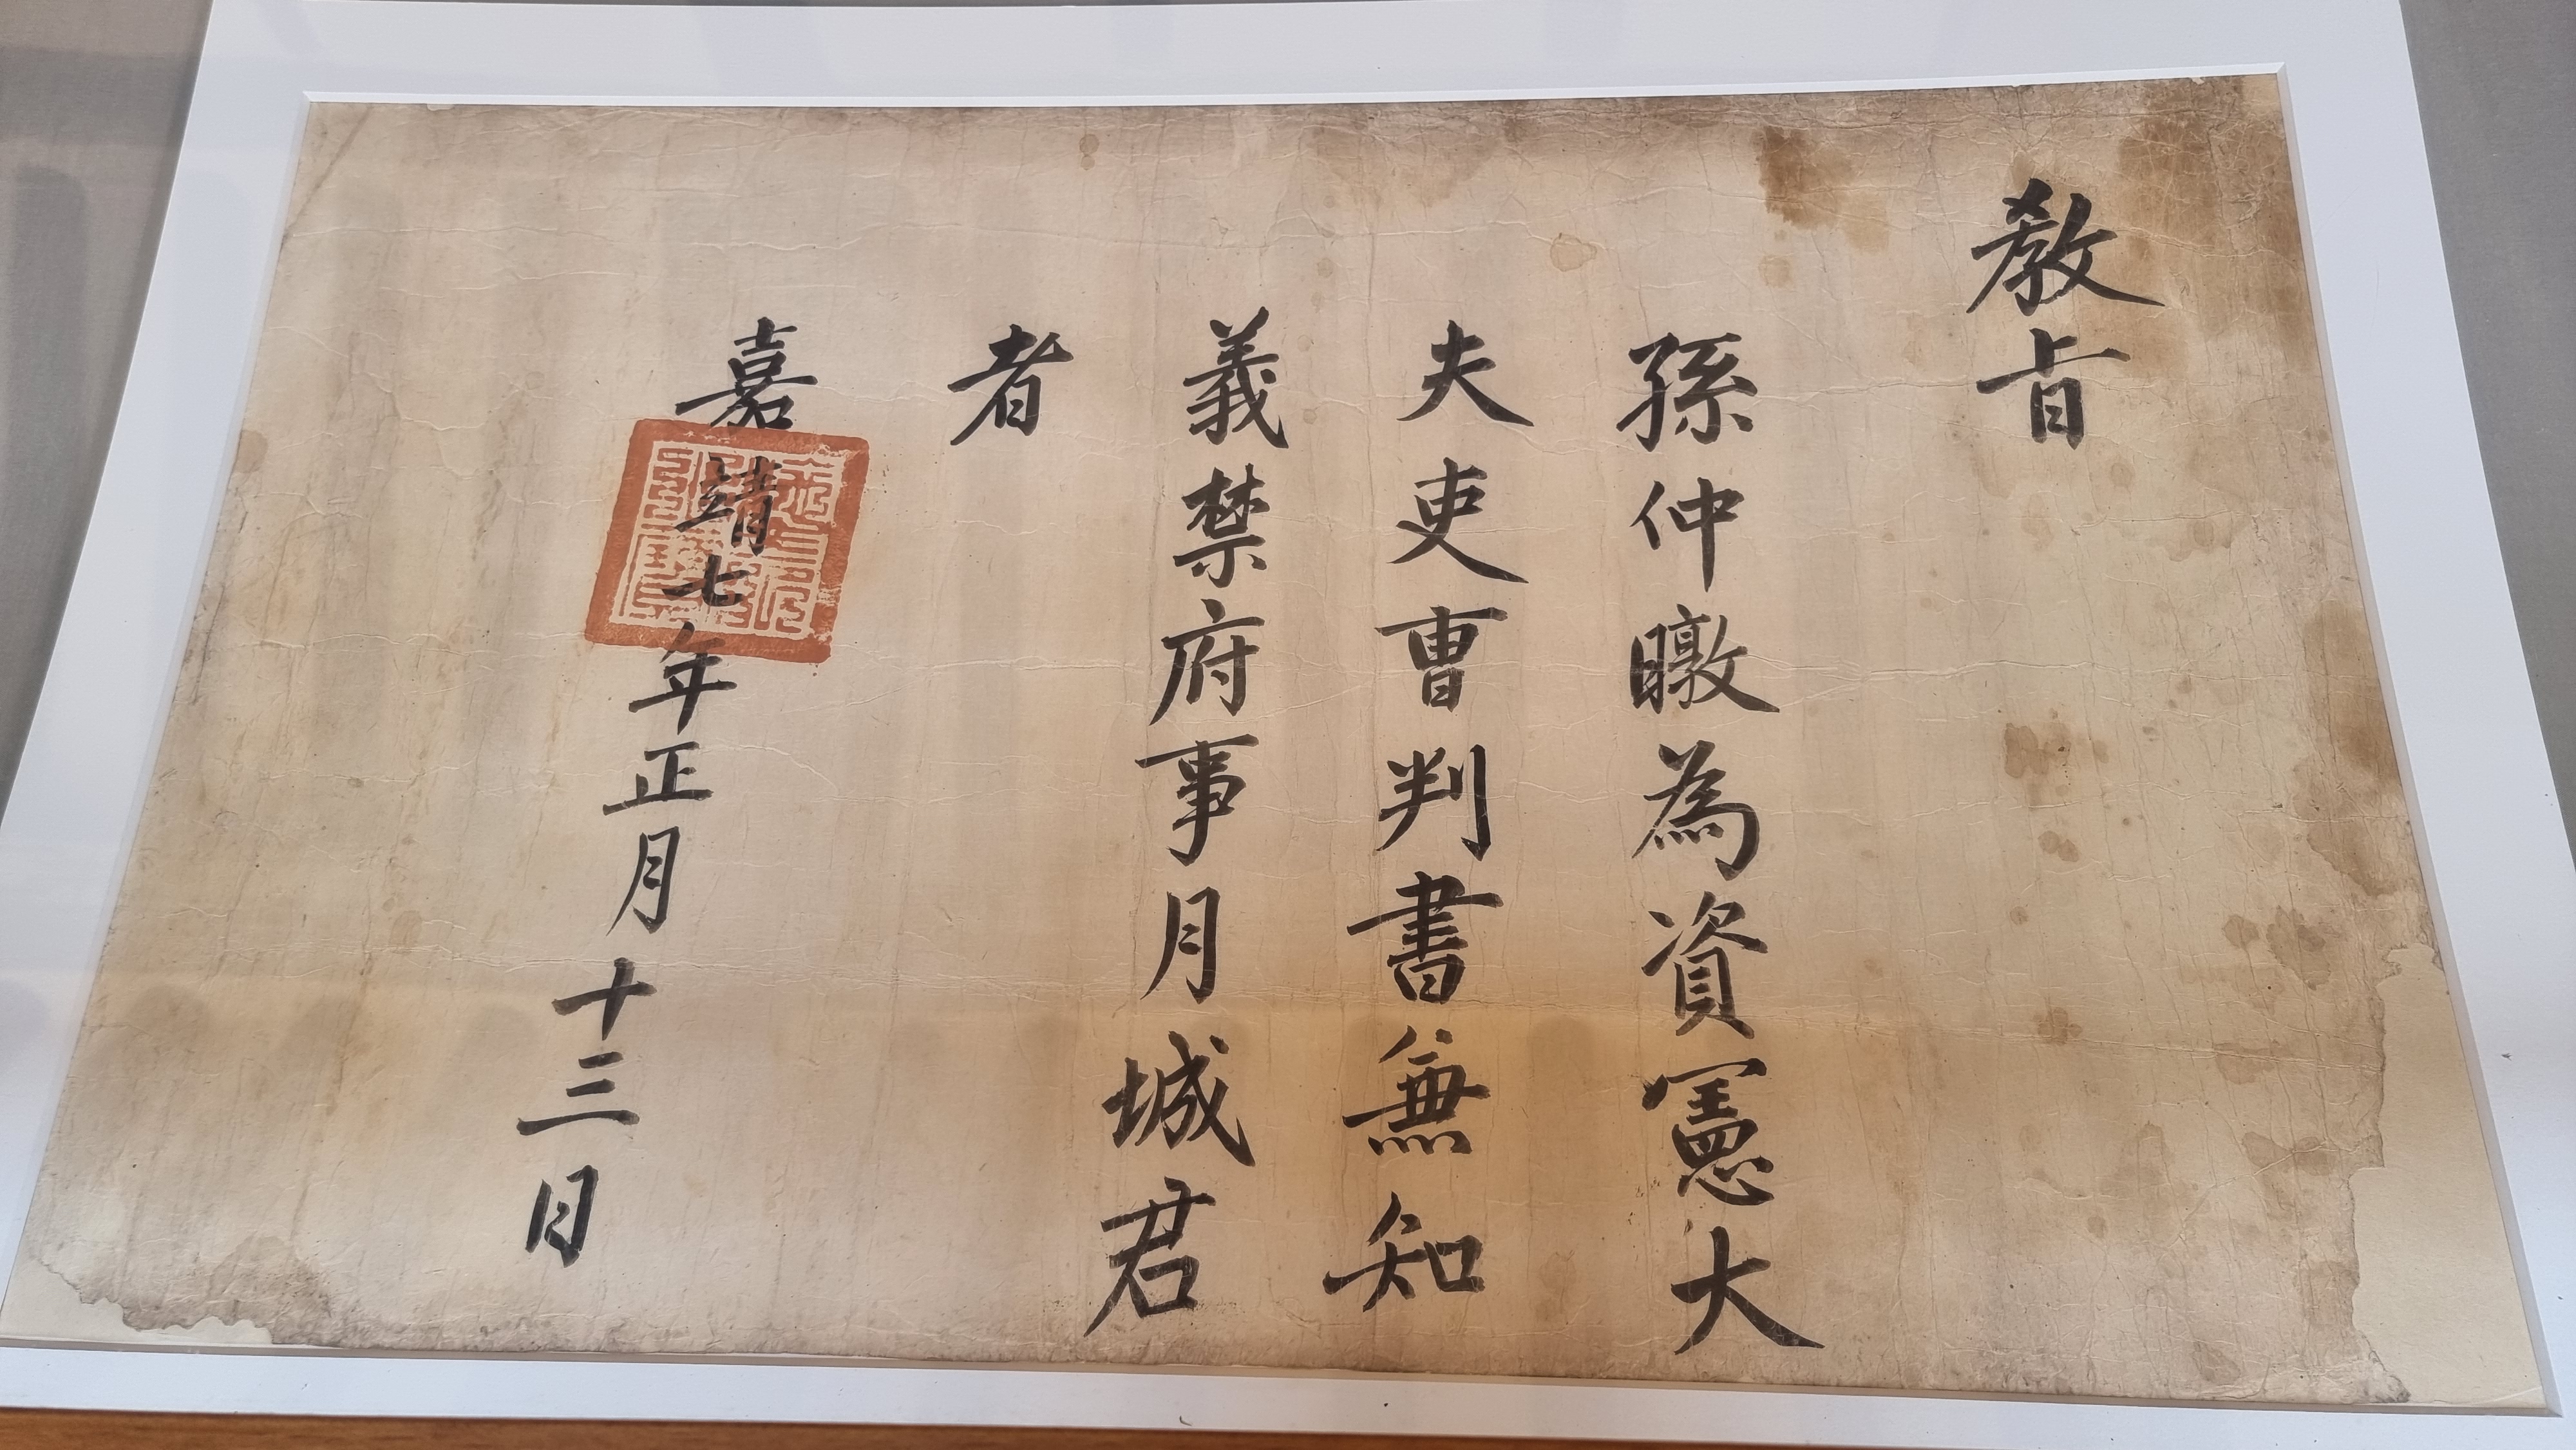 教旨
孫仲暾為資憲大
夫吏曺判書兼知
義禁府事月城君
者
嘉靖七年正月十三日